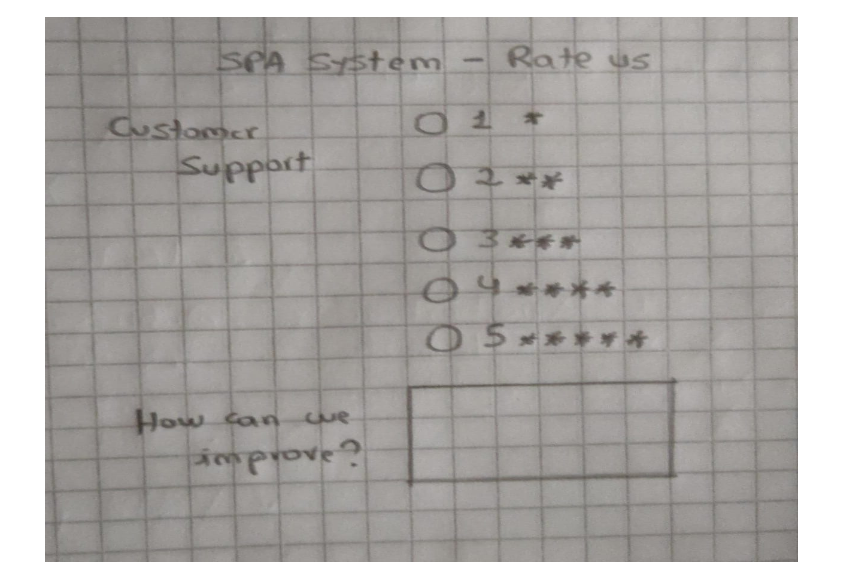 SPA System - Rate us
Customer
Support
1 *
2 **
3 ***
4 ****
5 *****
How can we
improve?